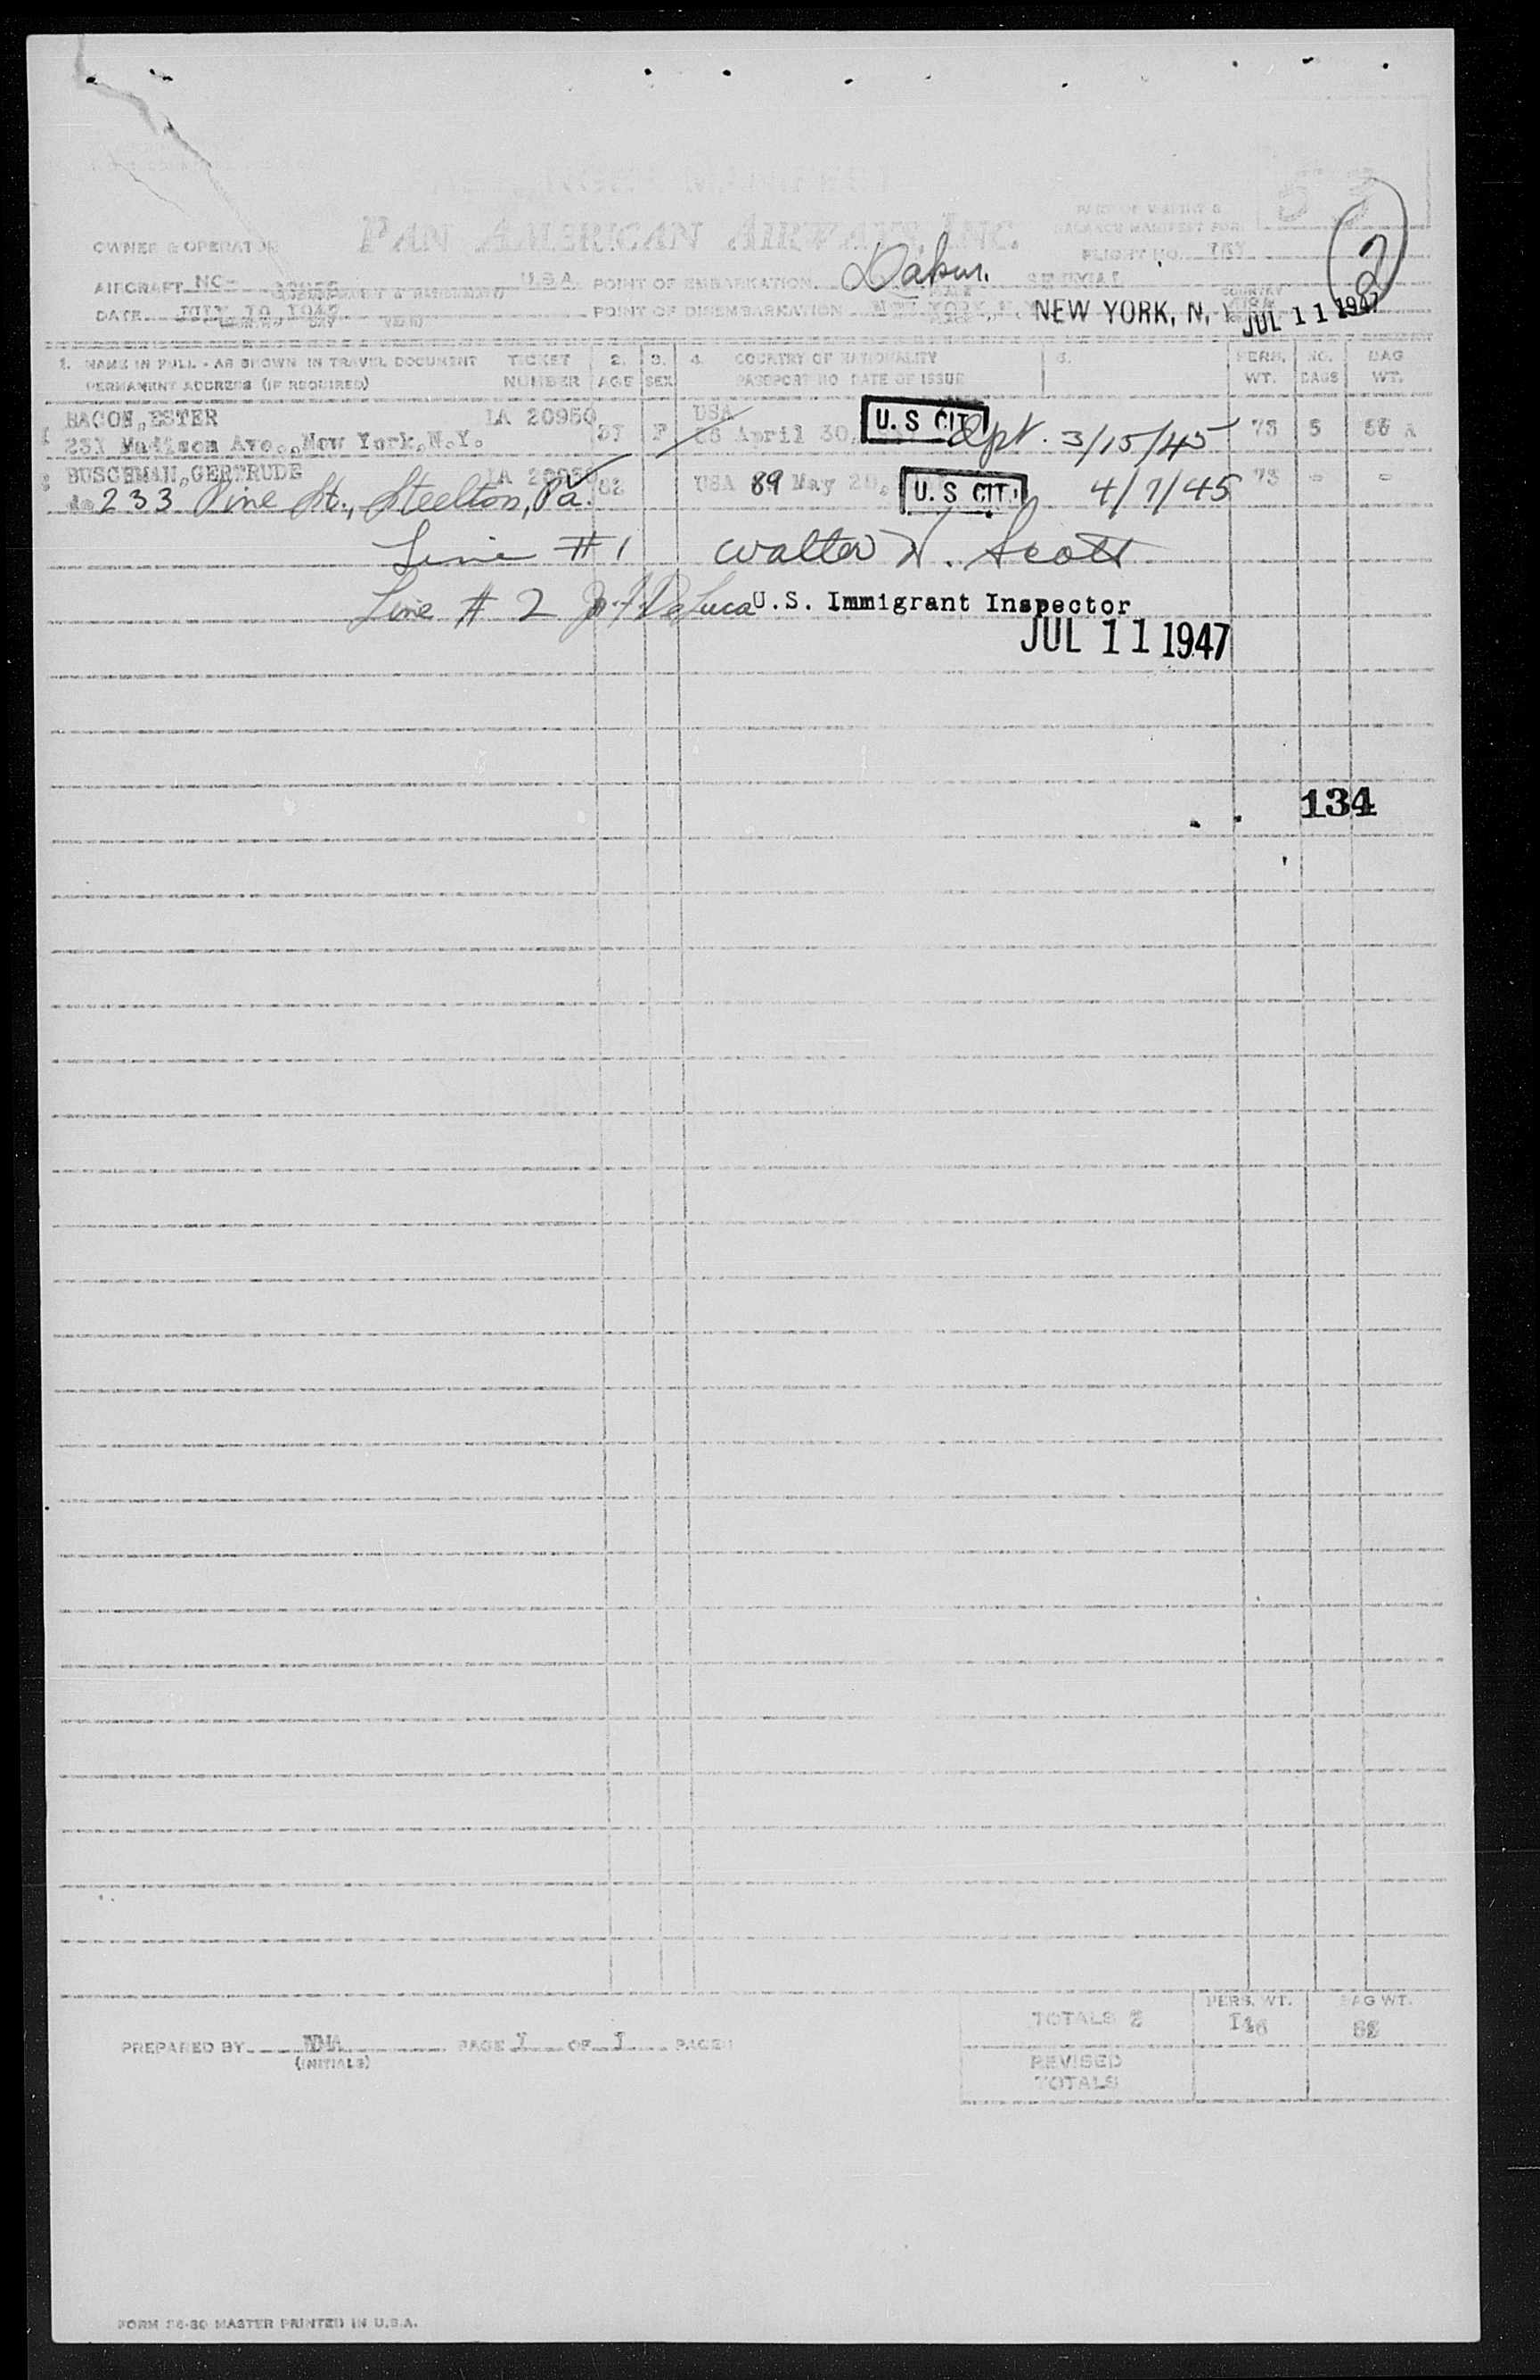 PAN AMERICAN AIRWAYS, INC.
OWNER & OPERATOR
PART OF WEIGHT &
BALANCE MANIFEST FOR:
FLIGHT NO.
(2)
AIRCRAFT NC- U.S.A. POINT OF EMBARKATION Dakar.
DATE JULY 10 1947 POINT OF DISEMBARKATION NEW YORK, N.Y. NEW YORK, N.Y. JUL 11 1947
1. NAME IN FULL - AS SHOWN IN TRAVEL DOCUMENT TICKET 2. 3. 4. COUNTRY OF NATIONALITY 5. PERS. NO. BAG
PERMANENT ADDRESS (IF REQUIRED) NUMBER AGE SEX PASSPORT NO DATE OF ISSUE WT. BAGS WT.
BACON, ESTER LA 20950 USA U.S CIT.
231 Madison Ave., New York, N.Y. F April 30, Dpt. 3/15/45 73 5
BUSCHMAN, GERTRUDE LA USA 89 May 20, U.S CIT. 4/7/45 73 -  -
do 233 Pine St., Steelton, Pa.
Line # 1 Walter W. Scott
Line # 2 DeLuca U.S. Immigrant Inspector
JUL 11 1947
134
TOTALS 2 PERS. WT. BAG WT.
PREPARED BY (INITIALS) PAGE 1 OF 1 PAGES
REVISED
TOTALS
FORM MASTER PRINTED IN U.S.A.